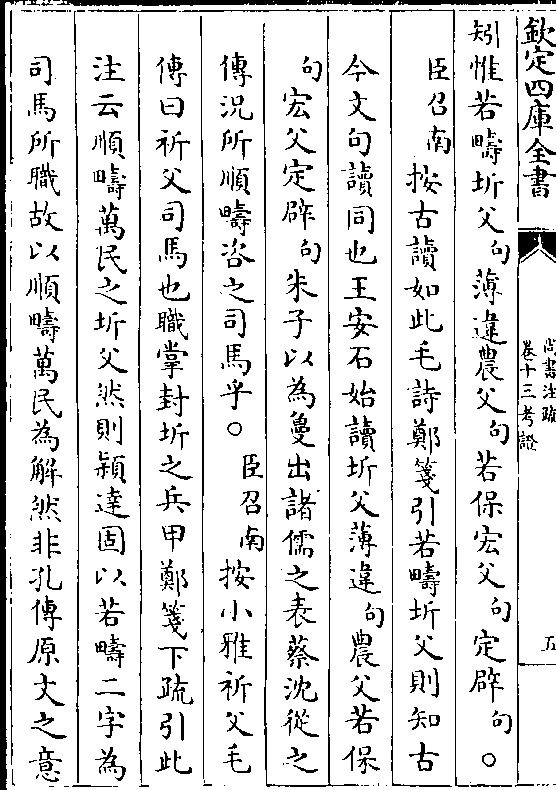 欽定四庫全書
尚書注疏
卷十三考證
五
矧惟若疇圻父句薄違農父句若保宏父句定辟句○
臣召南按古讀如此毛詩鄭箋引若疇圻父則知古
今文句讀同也王安石始讀圻父薄違句農父若保
句宏父定辟句朱子以為夐出諸儒之表蔡沈從之
傳況所順疇咨之司馬乎○臣召南按小雅祈父毛
傳曰祈父司馬也職掌封圻之兵甲鄭箋下疏引此
注云順疇萬民之圻父然則穎達固以若疇二字為
司馬所職故以順疇萬民為解然非孔傳原文之意